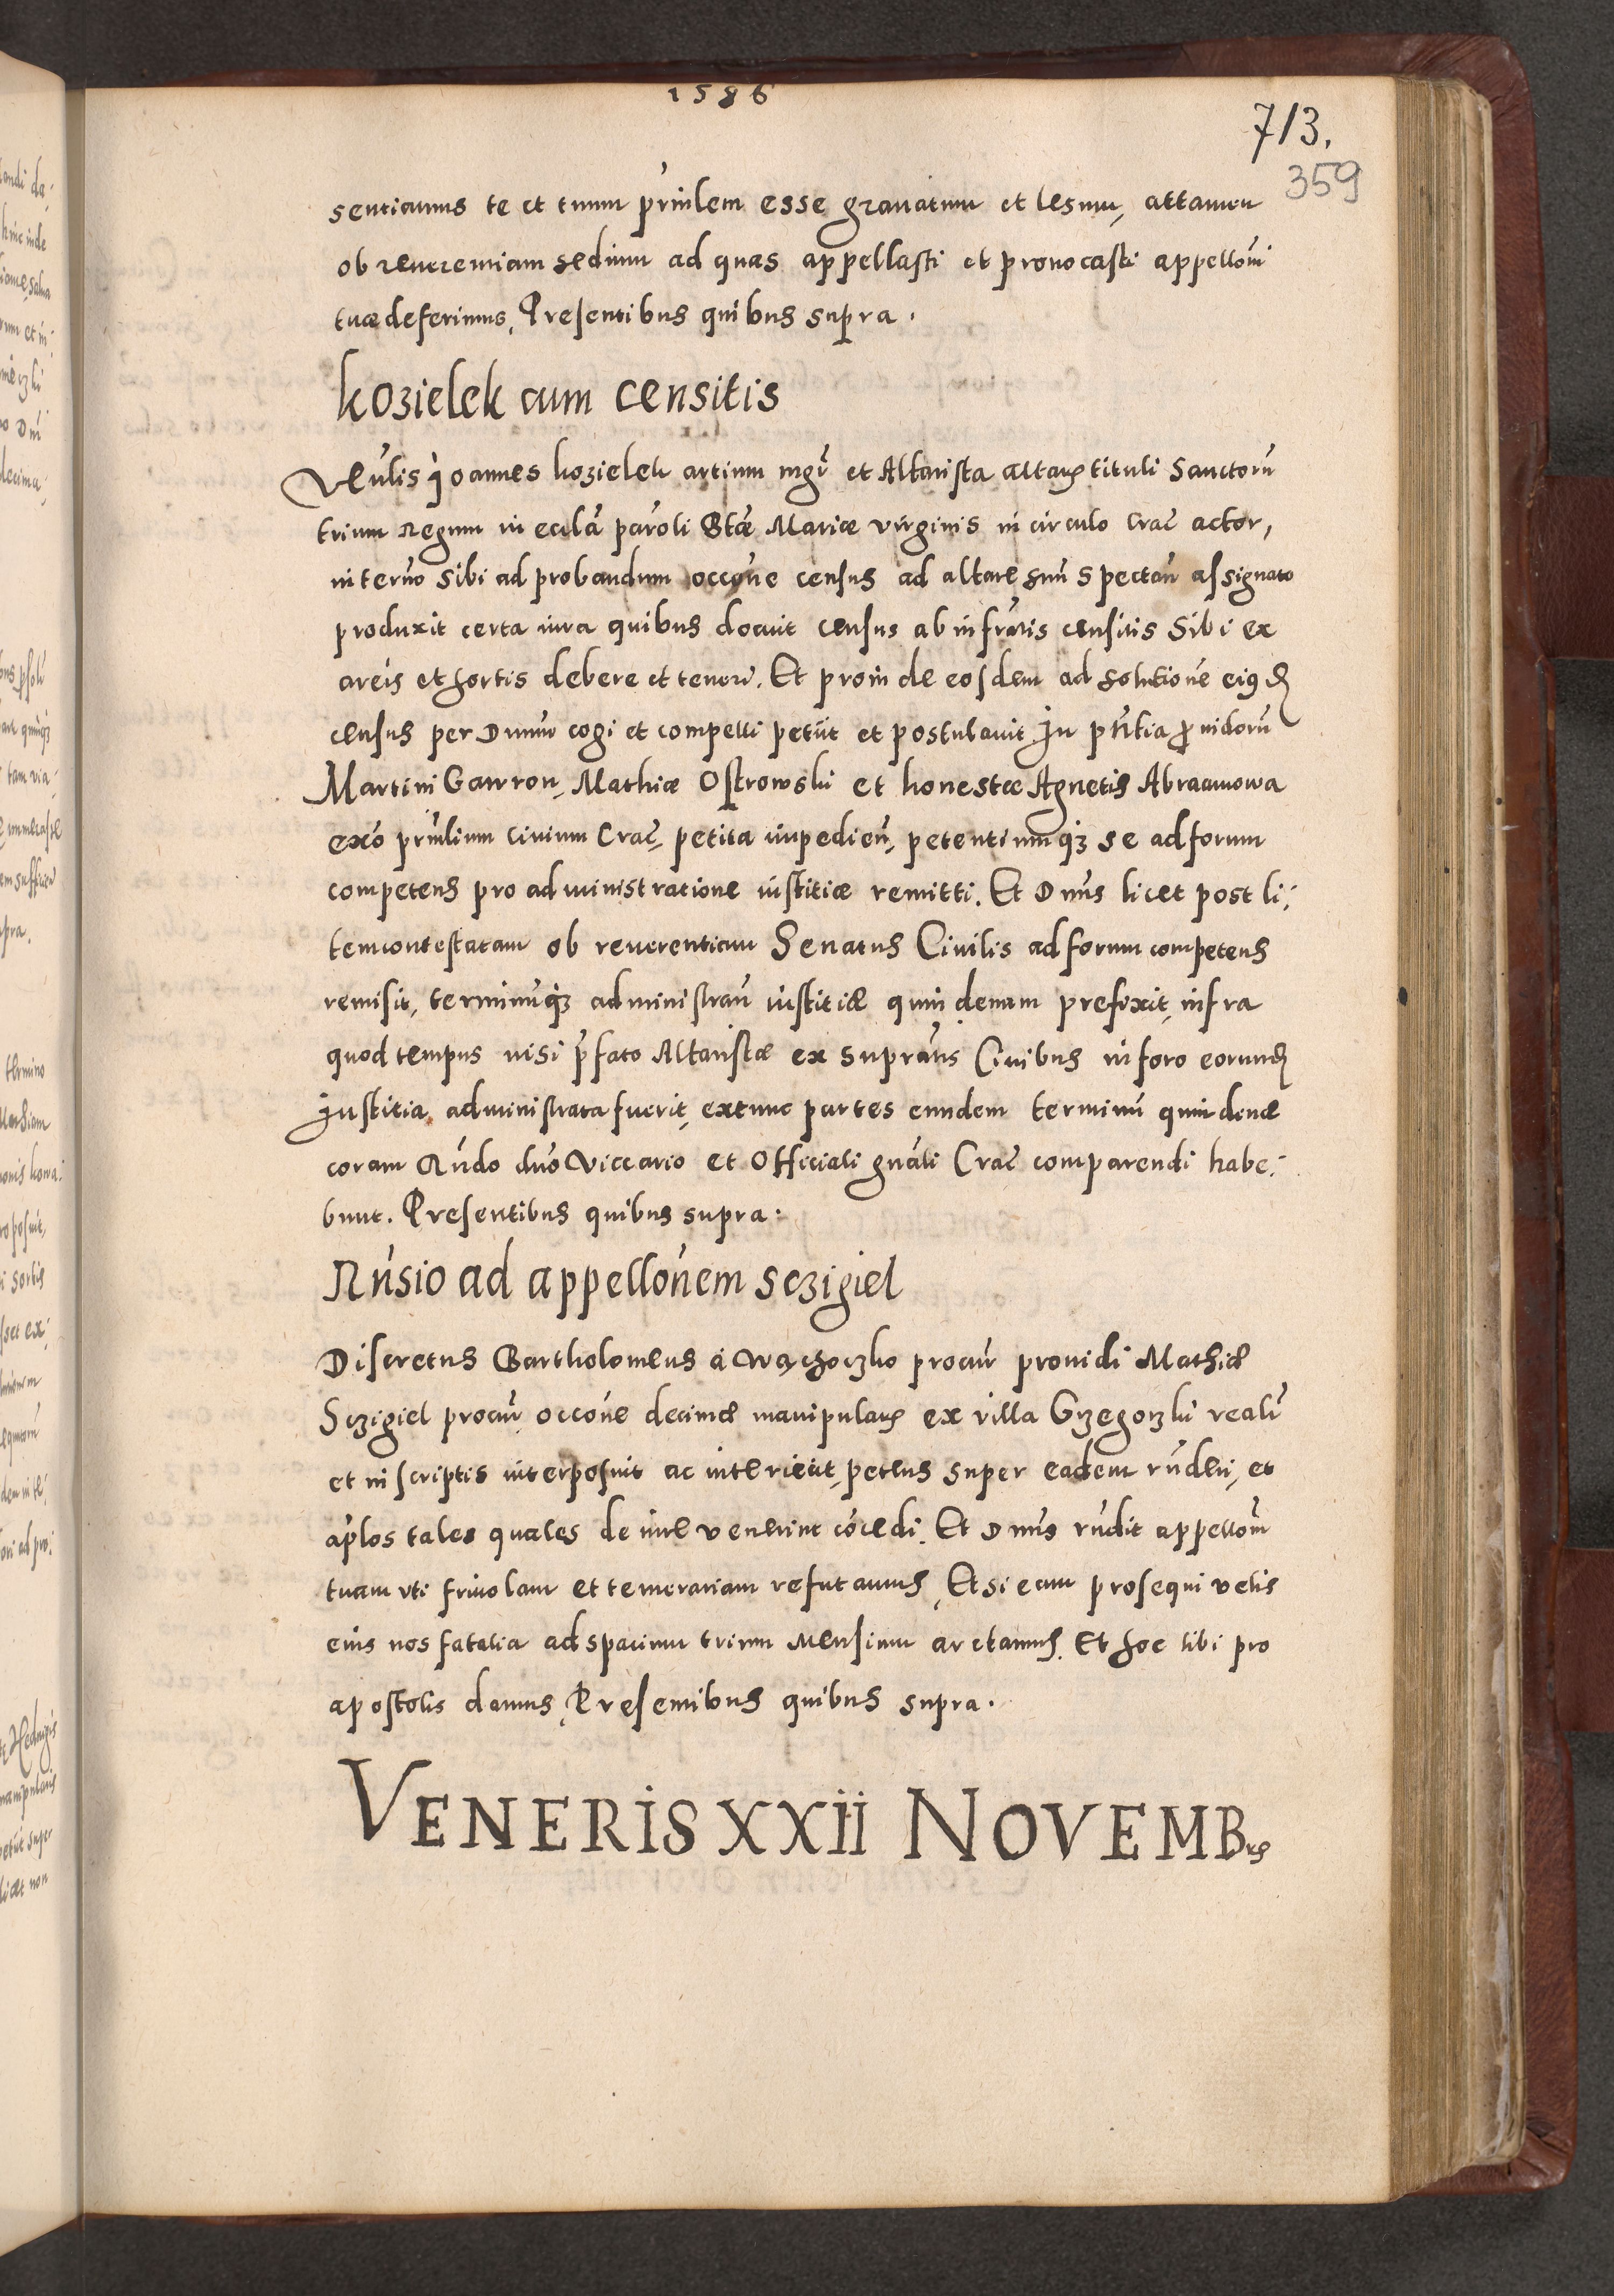 1586
713.
359
sentiamus te et tuum prinlem esse grauatum et lesum, attamen
ob reuerentiam sedium ad quas appellasti et prouocasti appelloni
tuæ deferimus, Presentibus quibus supra.
kozielek cum censitis
Veulis Joannes kozielek artium mgr et Altarista altaris tituli Sanctoru
trium Regum in ecclã paroli Btæ Mariæ virginis in circulo Crac actor,
in termo sibi ad probandum occone census ad altare suu spectan assignato
produxit certa iura quibus docuit census ab infratis censitis Sibi ex
areis et hortis debere et teneri. Et proin de eosdem ad solutione eiusd
census per Dnum cogi et compelli petiit et postulauit In pntia prouidoru
Martini Gawron, Mathiæ Ostrowski et honestæ Agnetis Abraamowa
exo prinlium Ciuium Crac, petita impedien, petentiumq3 se ad forum
competens pro administratione iustitiæ remitti. Et Dnus licet post li-
tem contestatam ob reuerentiam Senatus Ciuilis ad forum competens
remisit, terminuq3 administran iustitiæ quindenam prefixit, infra
quod tempus nisi pfato Altaristæ ex supratis Ciuibus in foro eorund
Iustitia administrata fuerit, extunc partes eundem terminu quindenæ
coram Rndo dno Viccario et Officiali gnali Crac comparendi habe-
bunt. Presentibus quibus supra.
Rnsio ad appellonem sczigiel
Discretus Bartholomeus a Wąchoczko procur prouidi Mathiæ
Sczigiel procur occone decimæ manipularis ex villa Grzegorzki realr
et in scriptis interposuit ac interiecit, petens super eadem rnderi, et
aplos tales quales de iure venerint cocedi. Et Dnus rndit appellom
tuam vti friuolam et temerariam refutamus, Et si eam prosequi velis
eius nos fatalia ad spatium trium Mensium arctamus. Et hoc tibi pro
apostolis damus, Presentibus quibus supra.
VENERIS XXII NOVEMBris